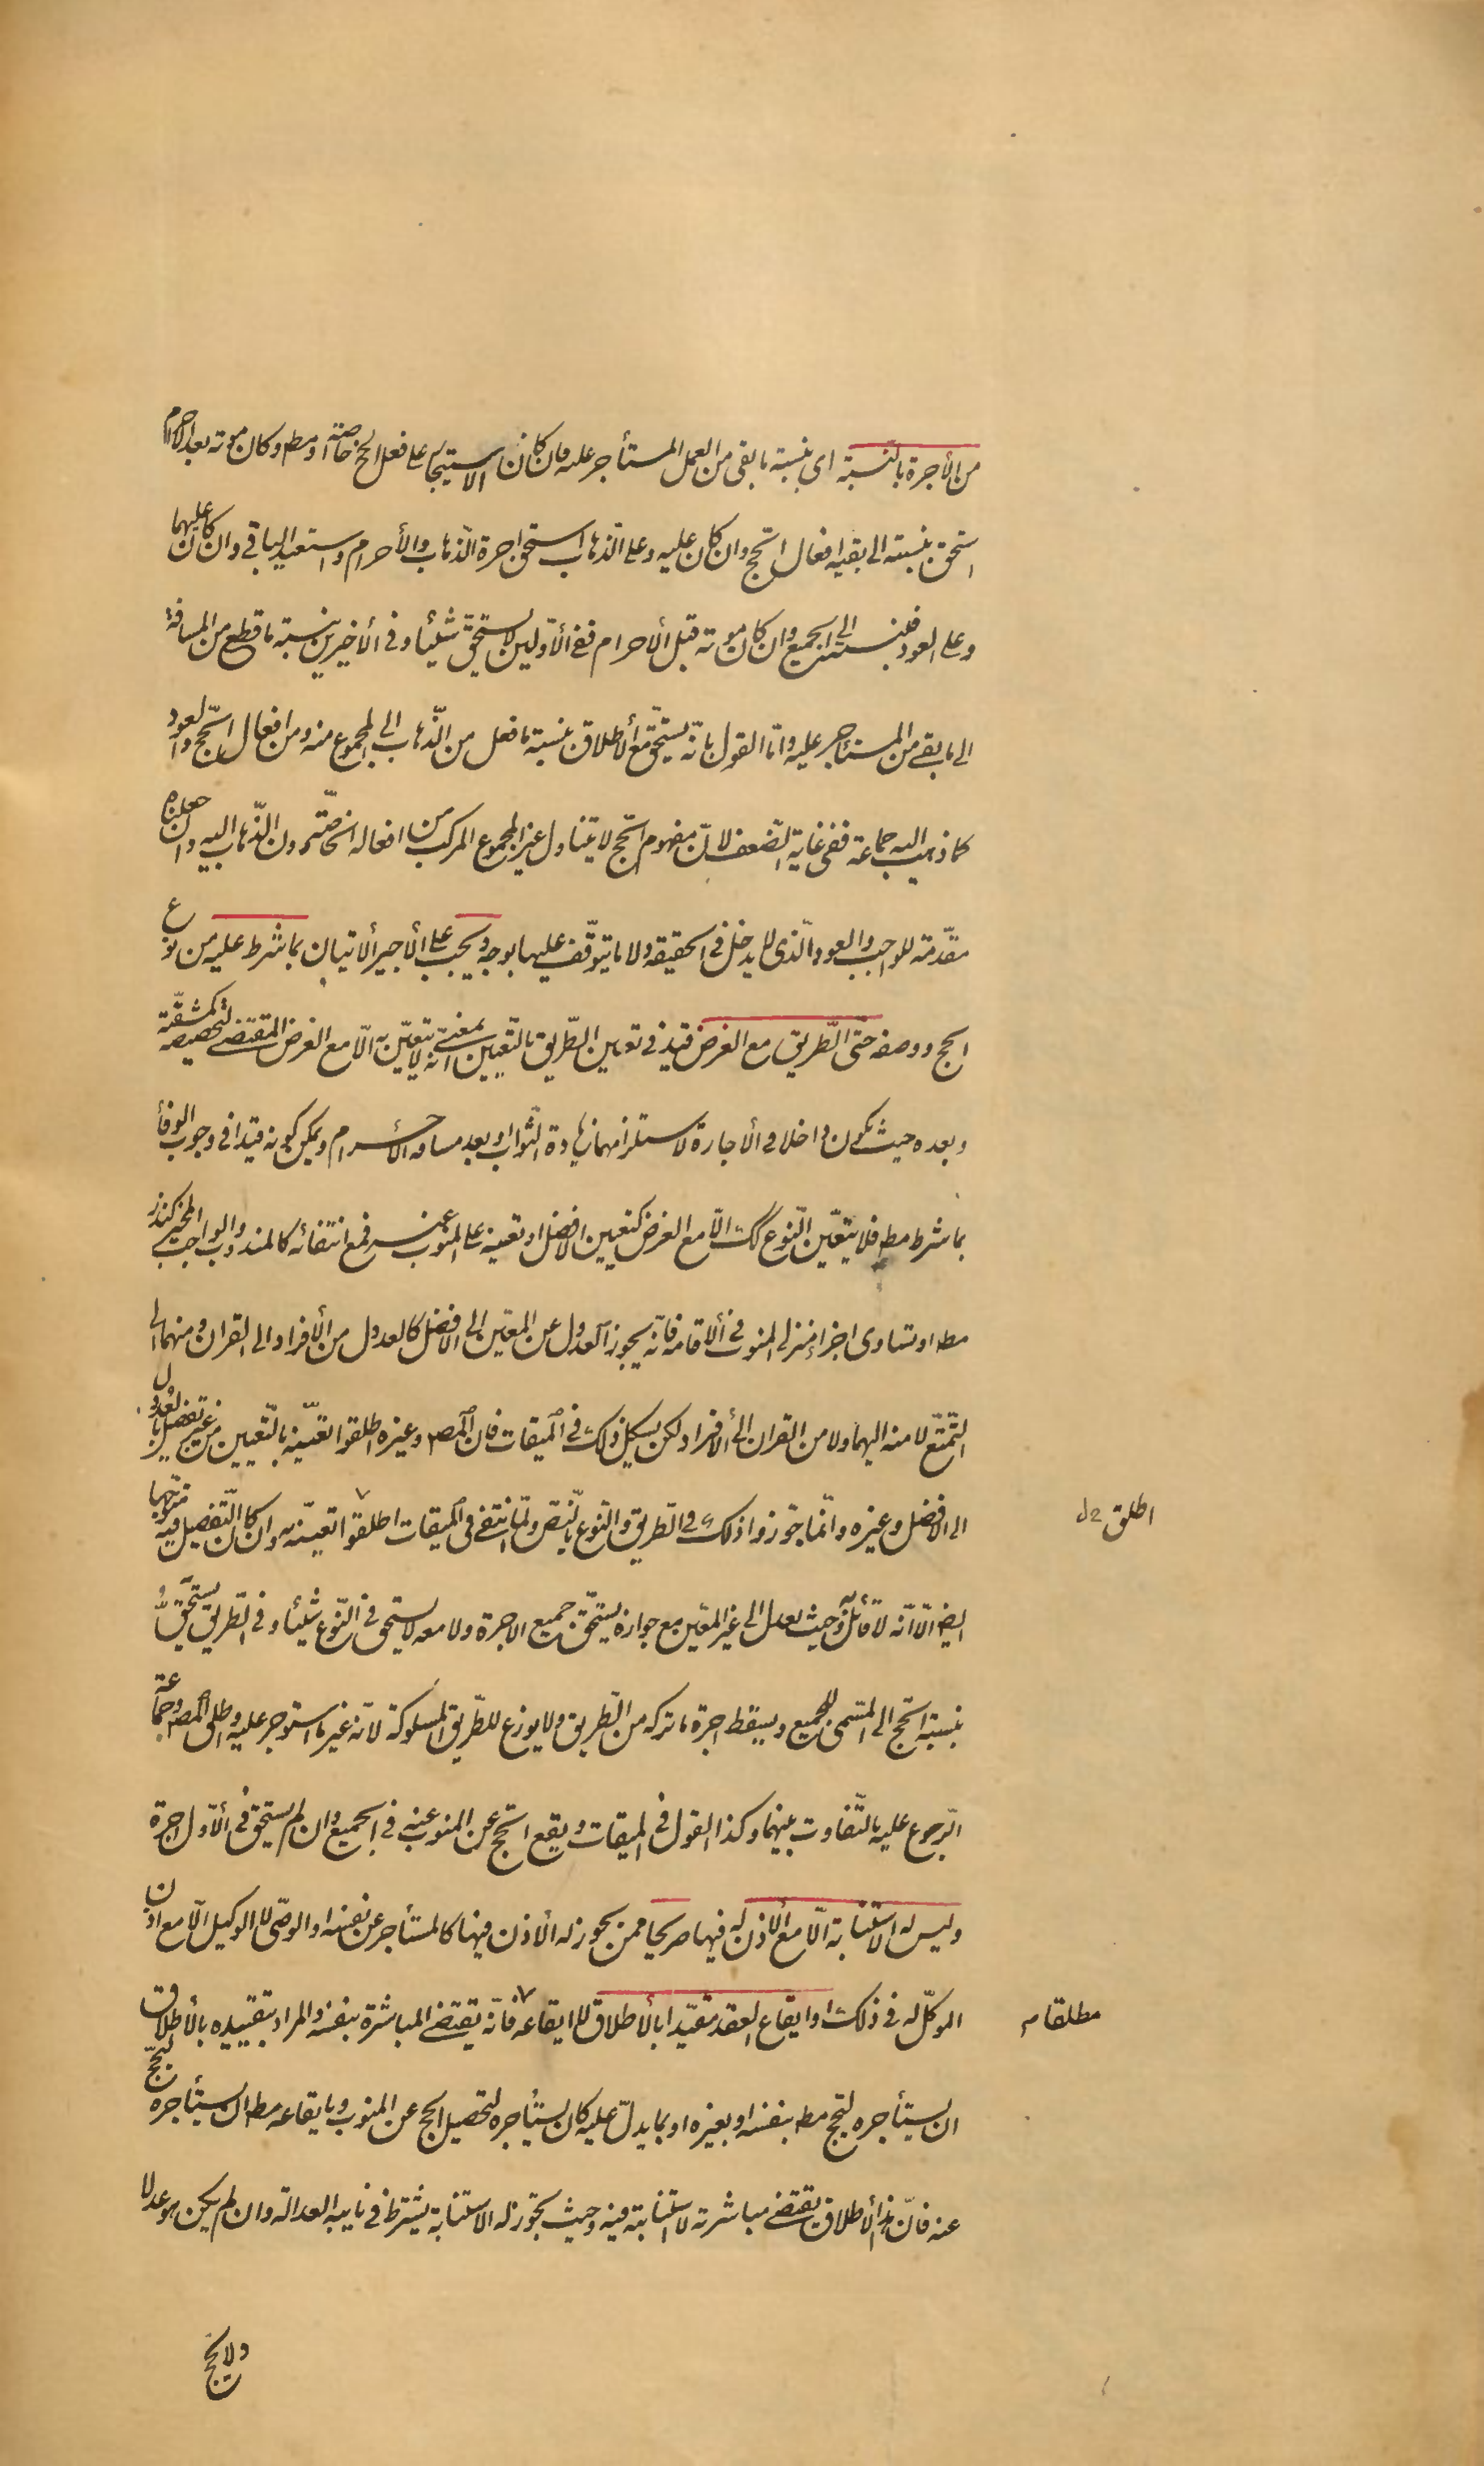 من الأجرة بالنسبة اى بنسبة ما بقى من العمل المستأجر عليه فان كان الاستيجار على فعل الحج خاصة او مط وكان موته بعد الاحرام
استحق بنسبته الى بقية افعال الحج وان كان عليه وعلى الذهاب استحق اجرة الذهاب والأحرام واستعيد الباقى وان كان عليهما
وعلى العود فبنسبته الى الجميع وان كان موته قبل الأحرام ففى الأولين لا يستحق شيئا وفى الأخيرين بنسبة ما قطع من المسافة
الى ما بقى من المستأجر عليه واما القول بانه يستحق مع الأطلاق بنسبة ما فعل من الذهاب الى المجموع منه ومن افعال الحج والعود
كما ذهب اليه جماعة ففى غاية الضعف لان مفهوم الحج لا يتناول غير المجموع المركب من افعاله الخاصة دون الذهاب اليه وان جعلناه
مقدمة للواجب والعود الذى لا يدخل فى الحقيقة ولا ما يتوقف عليها بوجه ويجب على الأجير الأتيان بما شرط عليه من نوع
الحج ووصفه حتى الطريق مع الغرض قيد فى تعيين الطريق بالتعيين بمعنى انه لا يتعين به الا مع الغرض المقتضى لتخصيصه كمشقته
وبعده حيث يكون داخلا فى الأجارة لاستلزامهما زيادة الثواب او بعد مسافة الأحرام ويمكن كونه قيدا فى وجوب الوفأ
بما شرط مط فلا يتعين النوع كك الا مع الغرض كتعيين الافضل او تعينه على المنوب عنه فمع انتفائه كالمندوب والواجب المخير كنذر
مط او تساوى اجزاء منزلى المنوب فى الأقامة فانه يجوز العدول عن المعين الى الافضل كالعدول من الأفراد الى القران ومنهما الى
التمتع لا منه اليهما ولا من القران الى الأفراد لكن يشكل ذلك فى الميقات فان المصر وغيره اطلقوا تعينه بالتعيين من غير تفصيل بالعدول
الى الافضل وغيره وانما جوزوا ذلك فى الطريق والنوع بالنص ولما انتفى فى الميقات اطلقوا تعينه به وان كان التفصيل فيه متوجها
ايضا الا انه لا قائل به وحيث يعدل الى غير المعين مع جوازه يستحق جميع الاجرة ولا معه لا يستحق فى النوع شيئا وفى الطريق يستحق
بنسبة الحج الى المسمى للجميع ويسقط اجرة ما تركه من الطريق ولا يوزع للطريق المسلوكة لانه غير ما استوجر عليه واطلق المصر وجماعة
الرجوع عليه بالتفاوت بينهما وكذا القول فى الميقات ويقع الحج عن المنوب عنه فى الجميع وان لم يستحق فى الأول اجرة
وليس له الاستنابة الا مع الأذن له فيها صريحا ممن يجوز له الأذن فيها كالمستأجر عن نفسه او الوصى لا الوكيل الا مع اذن
الموكل له فى ذلك او ايقاع العقد مقيدا بالأطلاق لا ايقاعه فانه يقتضى المباشرة بنفسه والمراد بتقييده بالأطلاق
ان يستأجره ليحج مط بنفسه او بغيره او بما يدل عليه كان يستأجره لتحصيل الحج عن المنوب وبايقاعه مط ان يستأجره ليحج
عنه فان هذا الأطلاق يقتضى مباشرته لا استنابته فيه وحيث يجوز له الاستنابة يشترط فى نايبه العدالة وان لم يكن هو عدلا
ولا يحج
اطلق
مطلقا